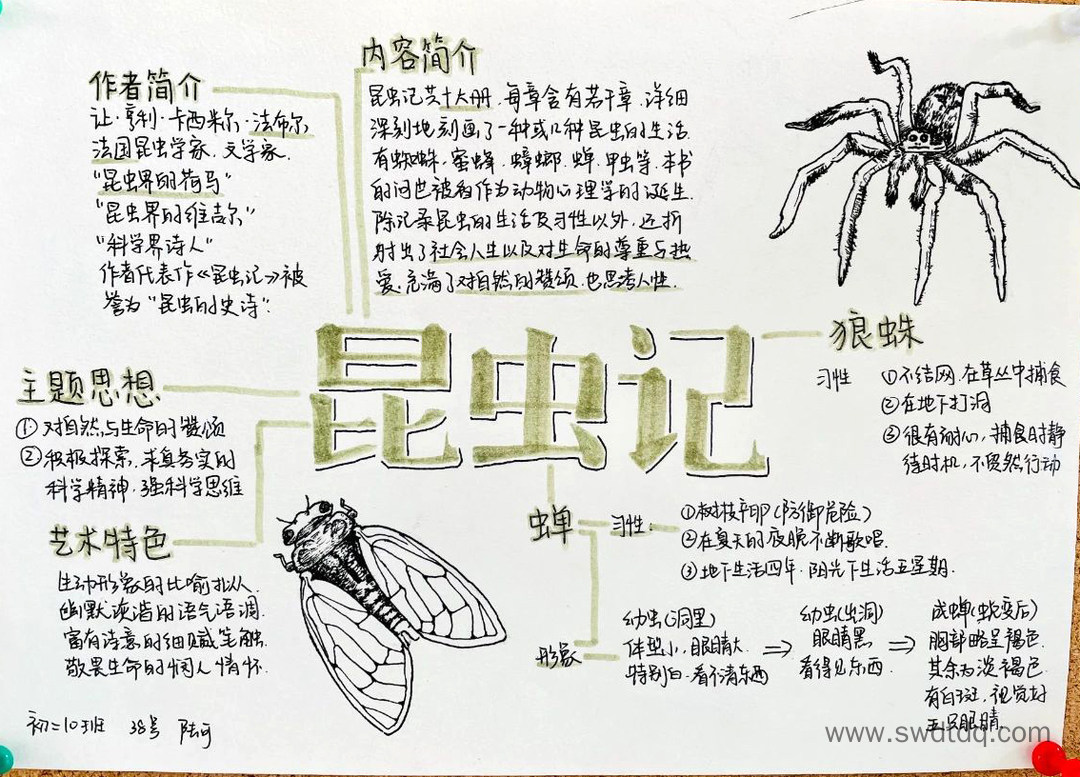 作者简介
让·亨利·卡西米尔·法布尔
法国昆虫学家、文学家.
“昆虫界的荷马”
“昆虫界的维吉尔”
“科学界诗人”
作者代表作《昆虫记》被
誉为“昆虫的史诗”.
内容简介
昆虫记共十大册.每章含有若干章.详细
深刻地刻画了一种或几种昆虫的生活.
有蜘蛛.蜜蜂.蟑螂.蝉.甲虫等.本书
的问世被看作为动物心理学的诞生.
除记录昆虫的生活及习性以外.还折
射出了社会人生以及对生命的尊重与热
爱.充满了对自然的赞颂.也思考人性.
昆虫记
狼蛛
习性
①不结网.在草丛中捕食
②在地下打洞
③很有耐心,捕食时静
待时机,不贸然行动
主题思想
①对自然与生命的赞颂
②积极探索.求真务实的
科学精神.强科学思维
艺术特色
生动形象的比喻拟人.
幽默诙谐的语气语调.
富有诗意的细腻笔触.
敬畏生命的悯人情怀.
蝉
习性:
①树枝产卵(防御危险)
②在夏天的夜晚不断歌唱.
③地下生活四年.阳光下生活五星期.
形象
幼虫(洞里)
体型小,眼睛大.
特别白.看不清东西
⇒
幼虫(出洞)
眼睛黑
看得见东西.
⇒
成蝉(蜕变后)
胸部略呈褐色.
其余为淡褐色.
有白斑,视觉好
五只眼睛.
初二10班 38号 陆可
www.swdtdq.com